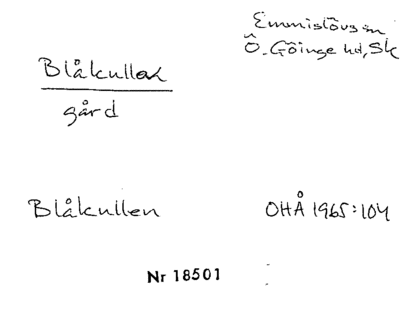 Emmislövs sn
Ö. Göinge hd, Sk
Blåkullen
gård
Blåkullen OHÅ 1965:104
Nr 18501